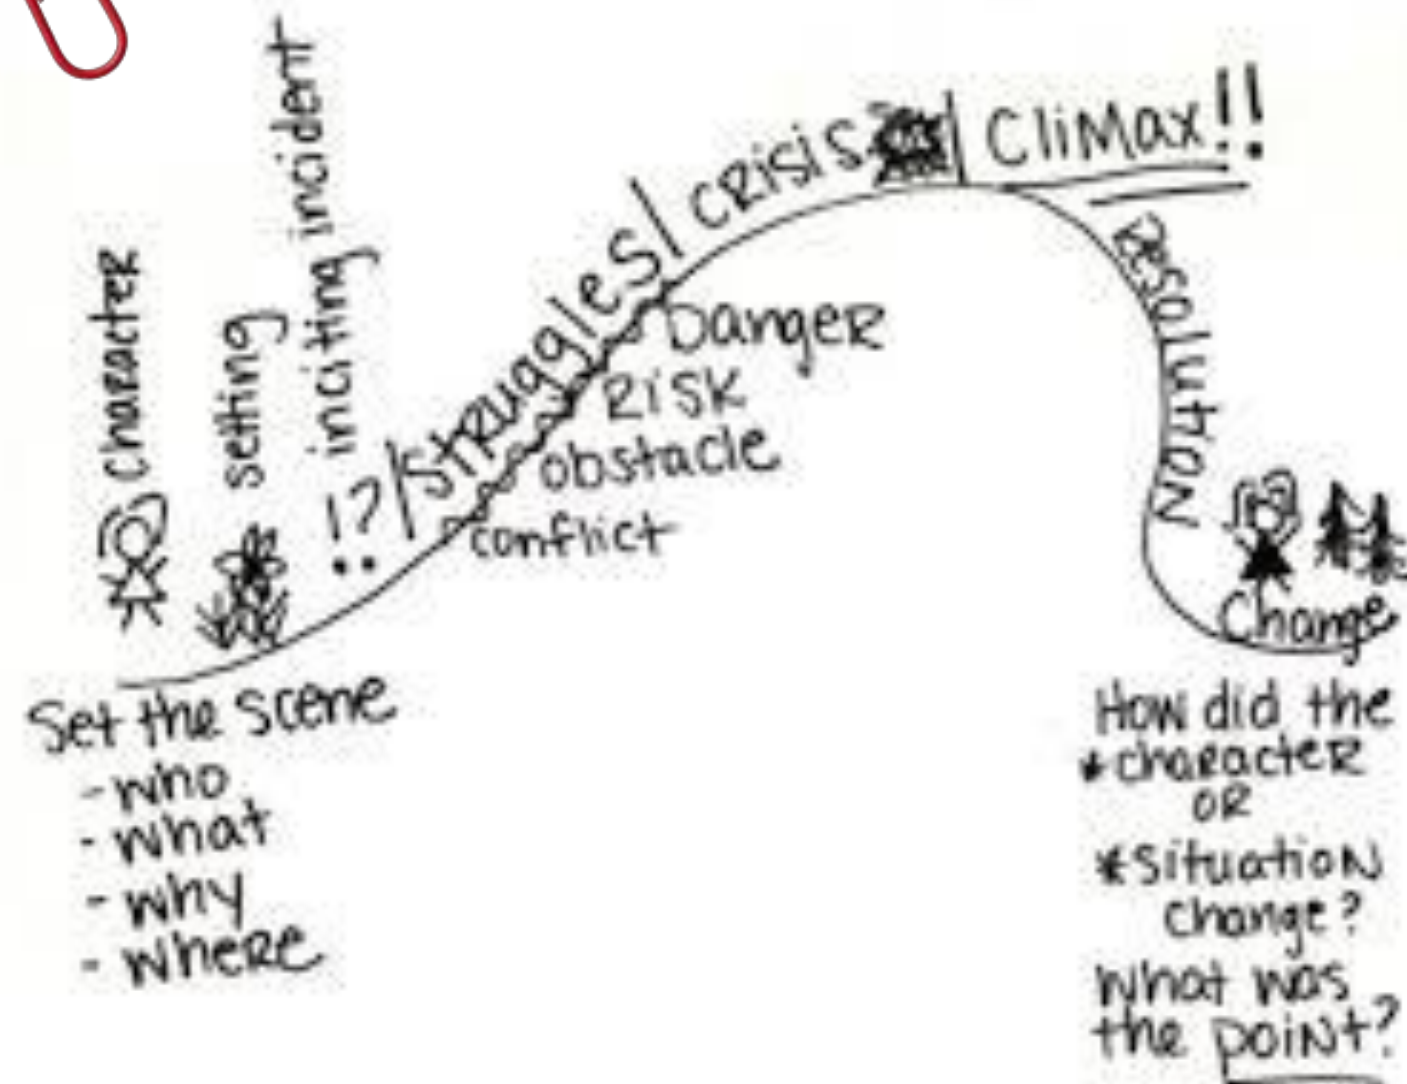 character
setting
inciting incident
!?
Struggles
crisis
CliMax!!
Resolution
Danger
Risk
obstacle
conflict
Change
Set the scene
- who
- what
- why
- where
How did the
*character
OR
*situation
change?
What was
the point?